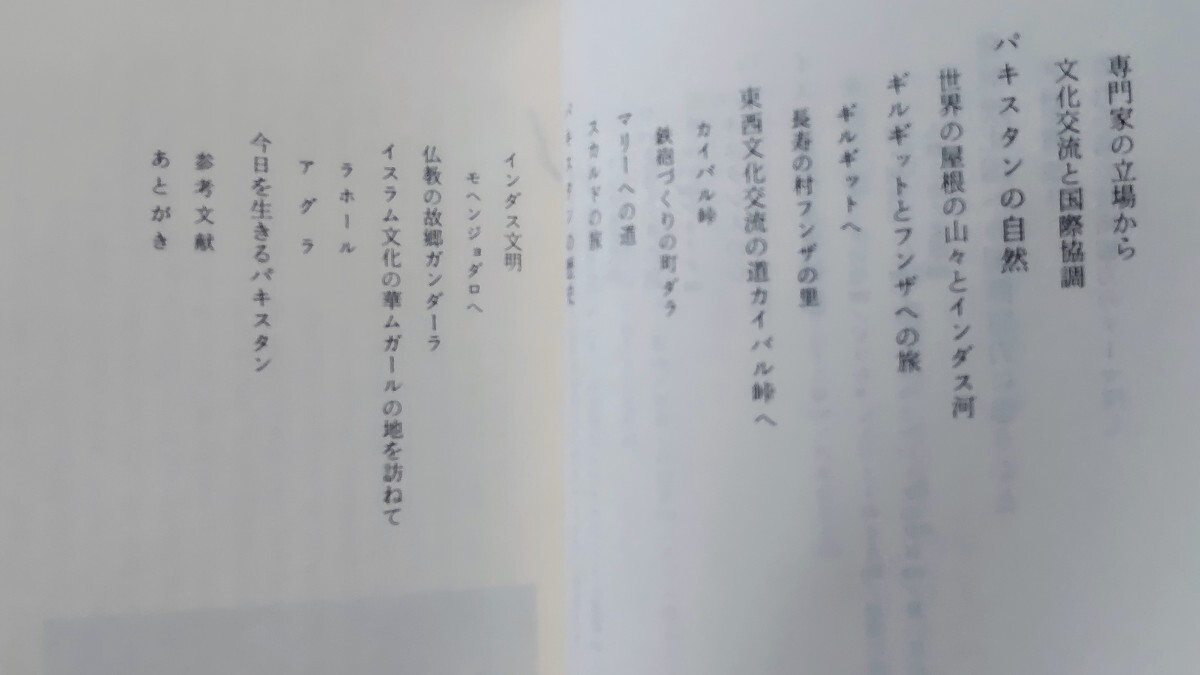 専門家の立場から
文化交流と国際協調
パキスタンの自然
世界の屋根の山々とインダス河
ギルギットとフンザへの旅
ギルギットへ
長寿の村フンザの里
東西文化交流の道カイバル峠へ
カイバル峠
鉄砲づくりの町ダラ
マリーへの道
スカルドの旅
インダス文明
モヘンジョダロへ
仏教の故郷ガンダーラ
イスラム文化の華ムガールの地を訪ねて
ラホール
アグラ
今日を生きるパキスタン
参考文献
あとがき